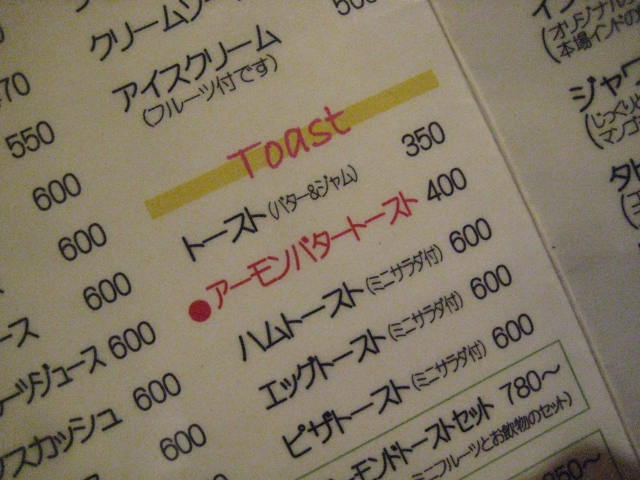 クリームソー
500
アイスクリーム
(フルーツ付です)
70
550
600
600
600
ース
ーツジュース 600
スカッシュ 600
600
Toast
トースト(バター&ジャム) 350
●アーモンバタートースト 400
ハムトースト(ミニサラダ付) 600
エッグトースト(ミニサラダ付) 600
ピザトースト(ミニサラダ付) 600
ーモンドトーストセット 780～
ミニフルーツとお飲物のセット)
350～
イン
(オリジナル
本場インドの
ジャワ
(じっくり
マンゴ
タ